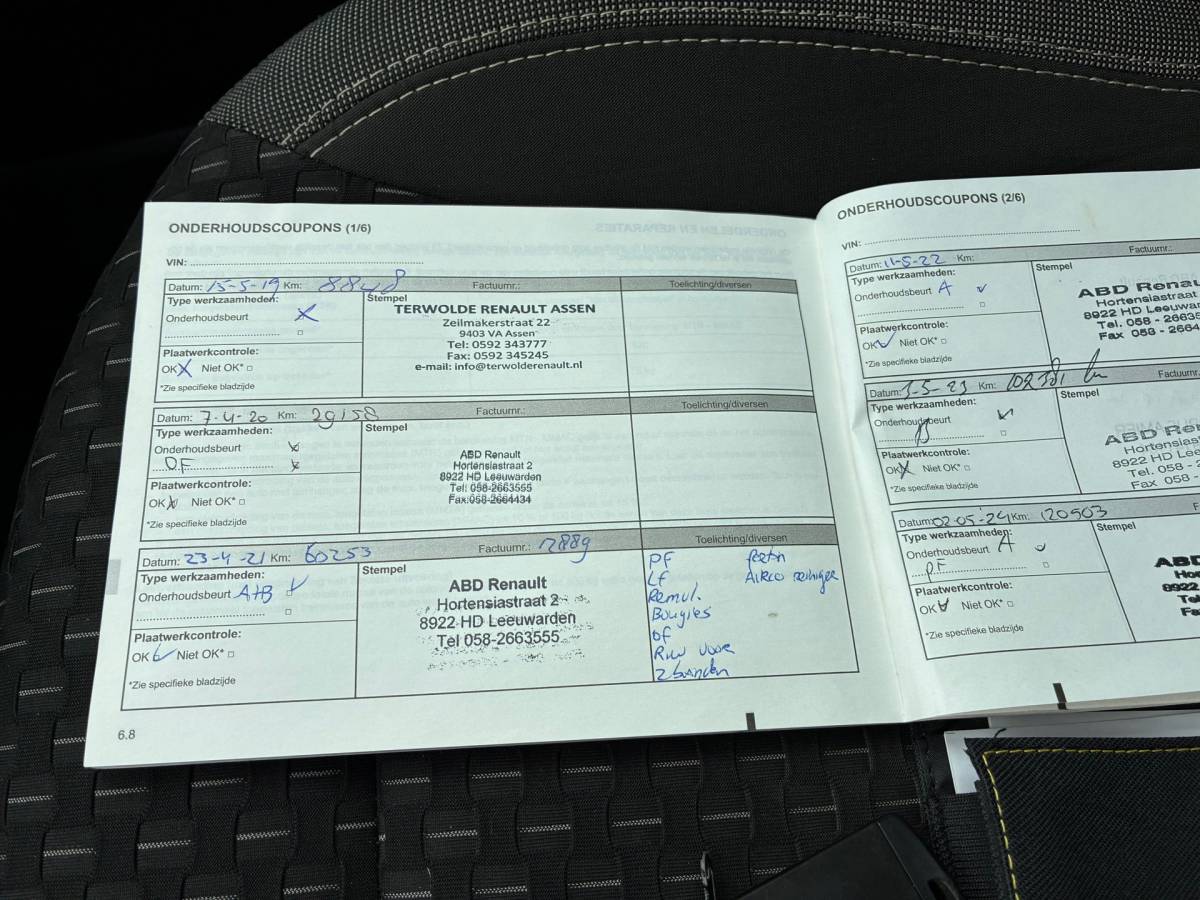 ONDERHOUDSCOUPONS (1/6)
VIN:
Datum: 15-5-19 Km: 8848 Factuurnr.: Toelichting/diversen
Type werkzaamheden: Stempel
Onderhoudsbeurt
TERWOLDE RENAULT ASSEN
Zeilmakerstraat 22
9403 VA Assen
Tel: 0592 343777
Fax: 0592 345245
e-mail: info@terwolderenault.nl
Plaatwerkcontrole:
OK X Niet OK*
*Zie specifieke bladzijde
Datum: 7-4-20 Km: 29158 Factuurnr.: Toelichting/diversen
Type werkzaamheden: Stempel
Onderhoudsbeurt
OF
ABD Renault
Hortensiastraat 2
8922 HD Leeuwarden
Tel: 058-2663555
Fax:058-2664434
Plaatwerkcontrole:
OK Niet OK*
*Zie specifieke bladzijde
Datum: 23-4-21 Km: 60253 Factuurnr.: 12889 Toelichting/diversen
Type werkzaamheden: Stempel
Onderhoudsbeurt A+B
ABD Renault
Hortensiastraat 2
8922 HD Leeuwarden
Tel 058-2663555
Plaatwerkcontrole:
OK Niet OK*
*Zie specifieke bladzijde
PF
LF Airco reiniger
Remvl.
Bougies
OF
Ruw voor
2 banden
6.8
ONDERHOUDSCOUPONS (2/6)
VIN:
Datum: 11-5-22 Km: Factuurnr.:
Type werkzaamheden: Stempel
Onderhoudsbeurt A
ABD Renau
Hortensiastraat
8922 HD Leeuwar
Tel. 058 - 26635
Fax 058 - 2664
Plaatwerkcontrole:
OK Niet OK*
*Zie specifieke bladzijde
Datum: 3-5-23 Km: 102381 km Factuurnr.
Type werkzaamheden: Stempel
Onderhoudsbeurt
B
ABD Ren
Hortensiastra
8922 HD Leeuw
Tel. 058 - 26
Fax 058 -
Plaatwerkcontrole:
OK X Niet OK*
*Zie specifieke bladzijde
Datum: 02-05-24 Km: 120503
Type werkzaamheden: Stempel
Onderhoudsbeurt A
OF
ABD
Hort
8922
Tel
Fa
Plaatwerkcontrole:
OK Niet OK*
*Zie specifieke bladzijde